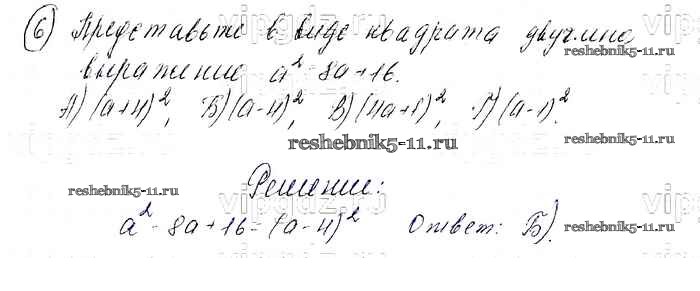 6) Представьте в виде квадрата двучлена
выражение a² - 8a + 16.
А) (a+4)², Б) (a-4)², В) (4a+1)², Г) (a-1)².
reshebnik5-11.ru
reshebnik5-11.ru
reshebnik5-11.ru
Решение:
reshebnik5-11.ru
a² - 8a + 16 = (a-4)² Ответ: Б).
reshebnik5-11.ru
vipgdz.ru